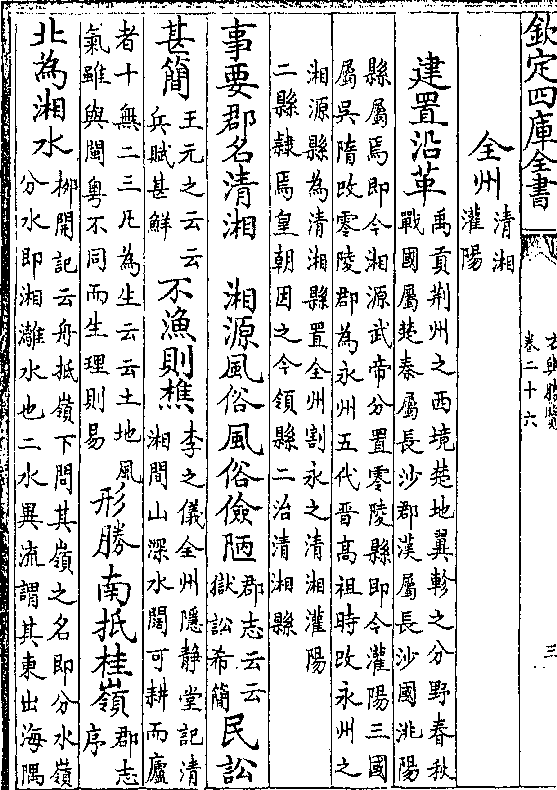 欽定四庫全書
方輿勝覽
卷二十六
三
全州
清湘
灌陽
建置沿革
禹貢荆州之西境楚地翼軫之分野春秋
戰國屬楚秦屬長沙郡漢屬長沙國洮陽
縣屬焉即今湘源武帝分置零陵縣即今灌陽三國
屬吳隋改零陵郡為永州五代晉高祖時改永州之
湘源縣為清湘縣置全州割永之清湘灌陽
二縣隸焉皇朝因之今領縣二治清湘縣
事要郡名清湘 湘源風俗風俗儉陋
郡志云云
獄訟希簡
民訟
甚簡
王元之云云
兵賦甚鮮
不漁則樵
李之儀全州隱静堂記清
湘間山深水闊可耕而廬
者十無二三凡為生云云土地風
氣雖與閩粤不同而生理則易
形勝南抵桂嶺
郡志
序
北為湘水
柳開記云舟抵嶺下問其嶺之名即分水嶺
分水即湘灕水也二水異流謂其東出海隅